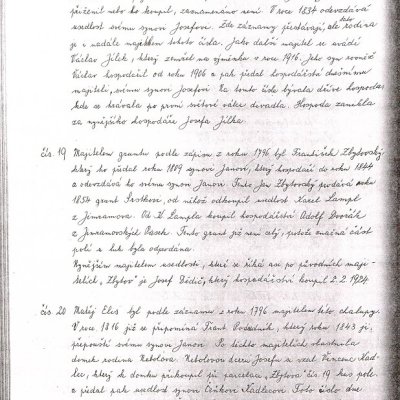 přiženil nebo ho koupil, zaznamenáno není. V roce 1834 odevzdává
usedlost svému synovi Josefovi. Zde záznamy přestávají, ale tato rodina
je i nadále majitelem tohoto čísla. Jako další majitel se uvádí
Václav Jílek, který zemřel na výminku v roce 1916. Jeho syn rovněž
Václav hospodařil od roku 1906 a pak předal hospodářství dnešnímu
majiteli, svému synovi Josefovi. Na tomto čísle bývala dříve hospoda,
kde se hrávala po první světové válce divadla. Hospoda zanikla
za nynějšího hospodáře Josefa Jílka.
čís. 19 Majitelem gruntu podle zápisu z roku 1796 byl František Zbytovský,
který ho předal roku 1809 synovi Janovi, který hospodařil do roku 1844
a odevzdává ho svému synovi Janovi. Tento Jan Zbytovský prodává roku
1854 grant od něhož odkoupil usedlost Karel Lampl
z Jimramova. Od K. Lampla koupil hospodářství Adolf Dvořák
z Jimramovských Pasek. Tento grunt již není celý, protože značná část
polí a luk byla odprodána.
Nynějším majitelem usedlosti, které se říká asi po původních maji-
telích „Zbytov" je Josef Dědič, který hospodářství koupil 2.2.1924.
čís. 20 Matěj Eles byl podle záznamu z roku 1796 majitelem této chalupy.
V roce 1816 již se připomíná Frant. který roku 1843 ji
přepouští svému synovi Janovi. Po těchto majitelích vlastnila
domek rodina Nebolova. Nebolovou dceru Josefu si vzal Vincenc Kad-
lec, který k domku přikoupil při parcelaci „Zbytova" čís. 19 kus pole
a předal pak usedlost synovi Čeňkovi Kadlecovi. Toto číslo dne